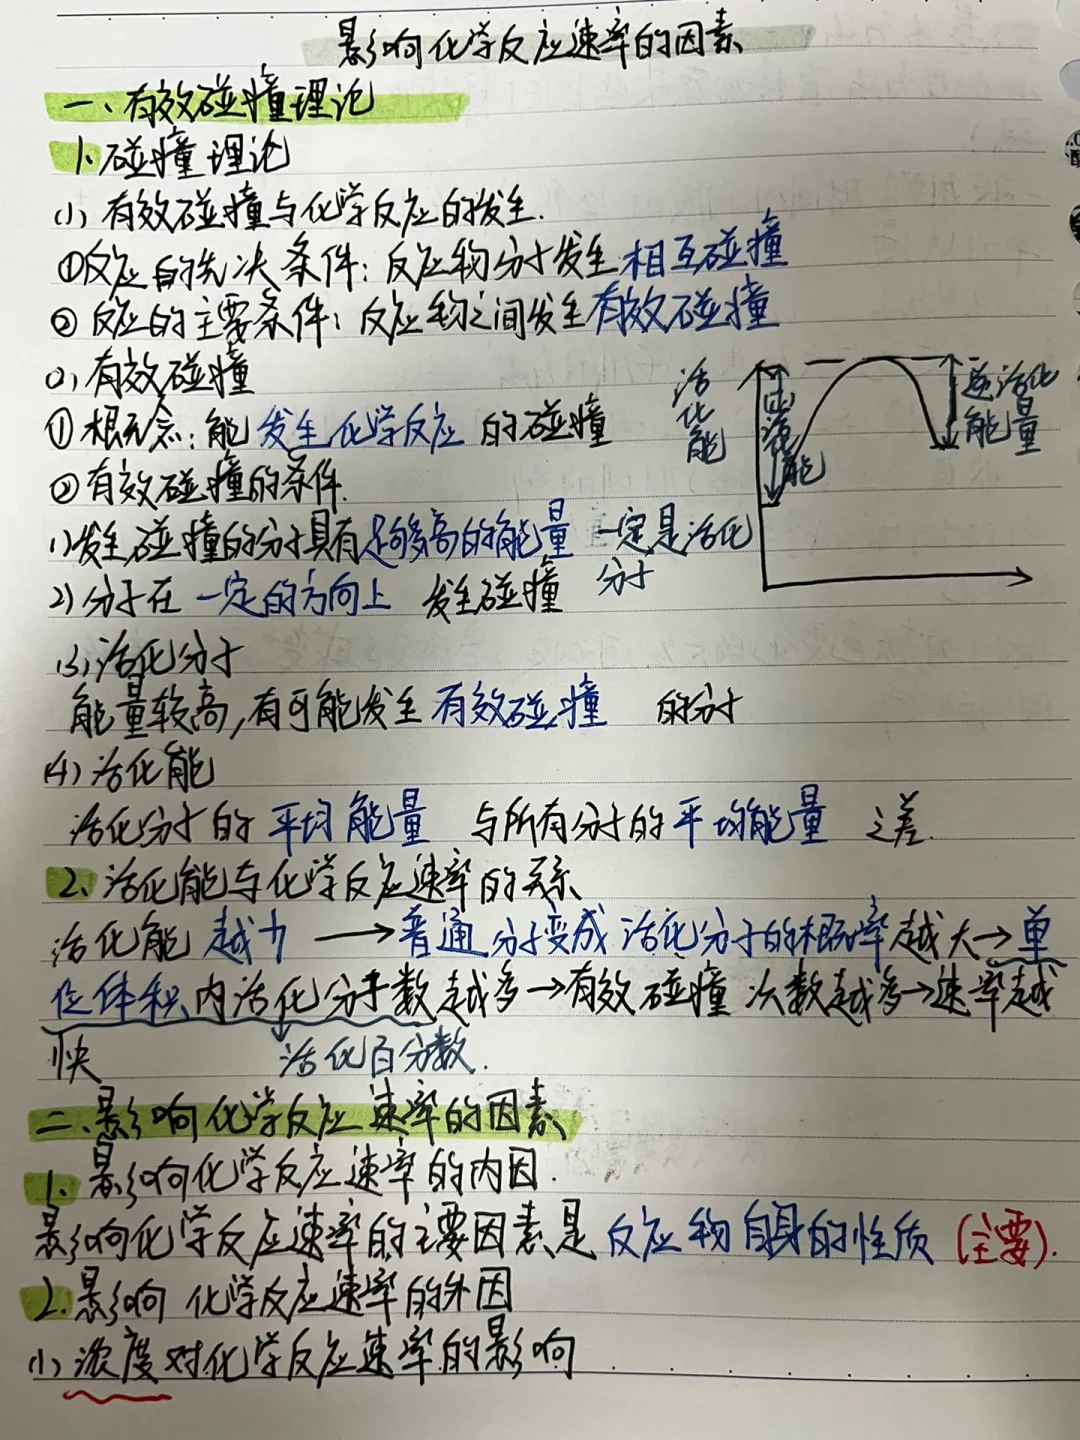 影响化学反应速率的因素
一、有效碰撞理论
1、碰撞理论
(1) 有效碰撞与化学反应的发生.
①反应的先决条件：反应物分子发生相互碰撞
② 反应的主要条件：反应物之间发生有效碰撞
(2) 有效碰撞
①概念：能 发生化学反应 的碰撞
②有效碰撞的条件.
1)发生碰撞的分子具有足够多高的能量 一定是活化
分子
2) 分子在 一定的方向上 发生碰撞
活化能
正活化能
逆活化
能量
(3) 活化分子
能量较高,有可能发生有效碰撞 的分子
(4) 活化能
活化分子的 平均能量 与所有分子的平均能量 之差.
2、活化能与化学反应速率的关系
活化能 越小 → 普通分子变成活化分子的概率越大→单
位体积内活化分子数越多→有效碰撞次数越多→速率越
快 活化百分数.
二.影响化学反应速率的因素
1. 影响化学反应速率的内因.
影响化学反应速率的主要因素是 反应物自身的性质 (主要).
2.影响化学反应速率的外因
(1) 浓度对化学反应速率的影响